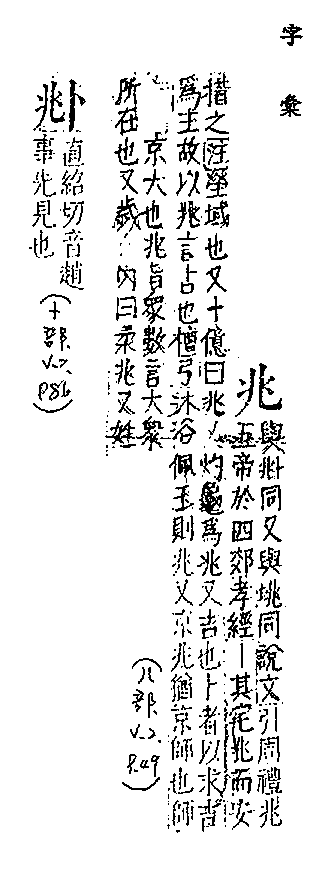 字彙
兆
與𠧞同又與垗同說文引周禮兆
五帝於四郊孝經｜其宅兆而安
措之注塋域也又十億曰兆又灼龜爲兆又吉也卜者以求吉
爲主故以兆言占也檀弓沐浴佩玉則兆又京兆猶京師也師
京大也兆者衆數言大衆
所在也又歲丙曰柔兆又姓
(八部 V-2 P.49)
𠧞
直紹切音趙
事先見也
(卜部 V-2 P86)